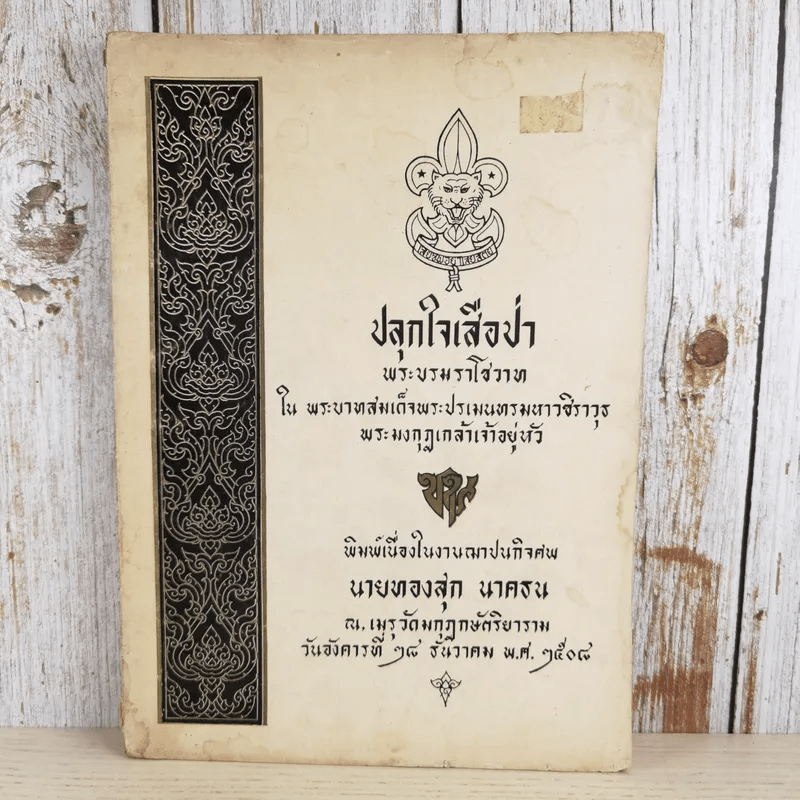 เสียชีพอย่าเสียสัตย์
ปลุกใจเสือป่า
พระบรมราโชวาท
ใน พระบาทสมเด็จพระปรเมนทรมหาวชิราวุธ
พระมงกุฎเกล้าเจ้าอยู่หัว
พิมพ์เนื่องในงานฌาปนกิจศพ
นายทองสุก นาคธน
ณ. เมรุวัดมกุฏกษัตริยาราม
วันอังคารที่ ๒๘ ธันวาคม พ.ศ. ๒๕๐๘